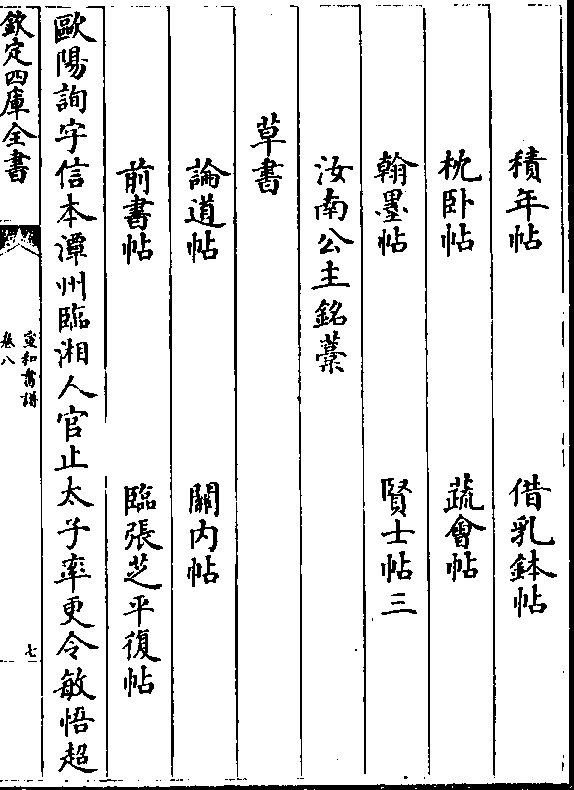 積年帖　借乳鉢帖
枕卧帖　蔬會帖
翰墨帖　賢士帖三
汝南公主銘藁
草書
論道帖　闗内帖
前書帖　臨張芝平復帖
歐陽詢字信本潭州臨湘人官止太子率更令敏悟超
欽定四庫全書
宣和書譜
卷八
七